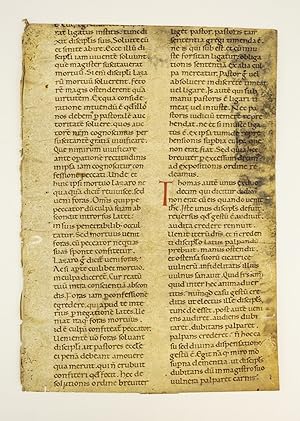 erat ligatus institis; tunc edi
xit discipulis suis. Soluite eū
et sinite abire. Ecce illū di
scipli iam uiuentē soluunt
quē magister suscitauerat
mortuū. Si eni discipli Laza
rū mortuū soluerent. feto
rē magis ostenderent quā
uirtutem. Ex qua conside
ratione intuendū ē qd illos
nos debem p pastoralē auc
toritatē soluere. quos auc
torē nrm cognoscimus per
suscitantē gratiā uiuificare.
Que nimirum uiuificatio
ante oprationē rectitudinis
impsa iam cognoscitur con
fessione peccati; Unde et
huic ipsi mortuo Lazaro ne
quaquā dicit reuiuisce. sed
ueni foras. Omis quippe
peccator dū culpā suam ab
scondit introrsus latet;
In suis penetralib; occultat.
Sed mortuus uenit
foras. cū peccator neqtias
suas sponte confitetur.
Lazaro g dicit ueni foras;
Ac si apte cuilibet mortuo in
culpa diceret. Cur reatū
tuū intra conscientiā abscon
dis? Foras iam p confessionē
egredere. qui apud te inte
rius p negationē lates. Ue
niat itaq; foras mortuus.
id ē culpā confiteat peccator.
Uenientē uero foras soluant
discipli. ut pastores ecclesie
ei penā debeant amouere
quā meruit. qui n erubuit
confiteri qd fecit. Hec de
solutionis ordine breuiter
liget pastor. pastoris tan
sententia gregi timenda ē.
ne is qui subest et cū iniu
ste forsitan ligatur. obliga
tionis sententiā ex alia cul
pa mereatur. Pastor g uel
absoluere indiscrete timeat
uel ligare. Is autē qui sub
manu pastoris ē ligari ti
meat uel iniuste. Nec pas
toris iudiciū temere repre
hendat. ne etsi iniuste liga
tus ē. ex ipsa tumide repre
hensionis supbia culpa que
non erat. fiat. Sed quia hec
p excessū diximus. ad ex
positionis ordinē redea
mus.
Thomas autē unus ex duo
decim qui dicitur didim
non erat cū eis quando uenit
ihc. Iste unus discipls defuit.
reuersus qd gestū ē audiuit.
audita credere rennuit.
Uenit iterū dns. et n creden
ti disciplo latus palpandū
prebuit. manus ostendit.
et ostensa suorū cicatrice
uulnerū infidelitatis illius
uulnus sanauit. Quid frs kmi
quid inter hec animaduer
titis? nūquid casu gestū cre
ditis ut electus ille discipls
tunc deesset. post autē ueni
ens audiret. audiens dubi
taret. dubitans palpar&.
palpans crederet? n hoc ca
su sed diuina dispensatione
gestū ē. Egit nāq; miro mo
supna clementia. ut discipls
dubitans dū in magistro suo
uulnera palparet carnis.